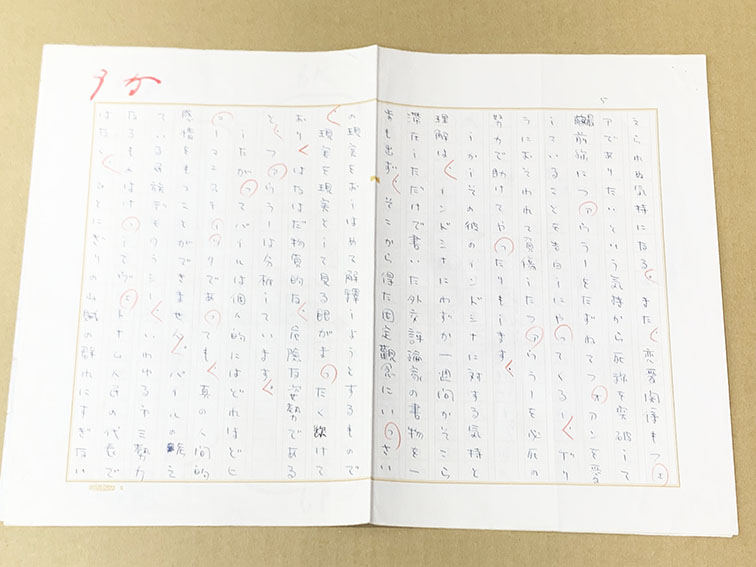 5
えられぬ気持になる、また、恋愛関係もフェ
アでありたいという気持から死線を突破して
前線にファウラーをたずねてフォアンを愛
していることを告白にやってくるし、ゲリ
ラにおそわれて負傷したファウラーを必死の
努力で助けてやったりもします。
しかしその彼のインドシナに対する気持と
理解は、インドシナにわずか一週間かそこら
滞在しただけで書いた外交評論家の書物を一
歩も出ず、そこから得た固定観念にいっさい
の現実をおしはめて解釋しようとするもので
、現実を現実として見る眼がまったく欠けて
おり、はなはだ物質的な、危険な姿勢である
と、ファウラーは分析しています。
したがってパイルは個人的にはどれほどヒ
ューマニスティックであっても、真の人間的
感情をもつことができません。パイルの考え
ている民族デモクラシー、いわゆる第三勢力
なるものはけっしてヴェトナム人民の代表で
はなく、ひとにぎりの山賊の群れにすぎない